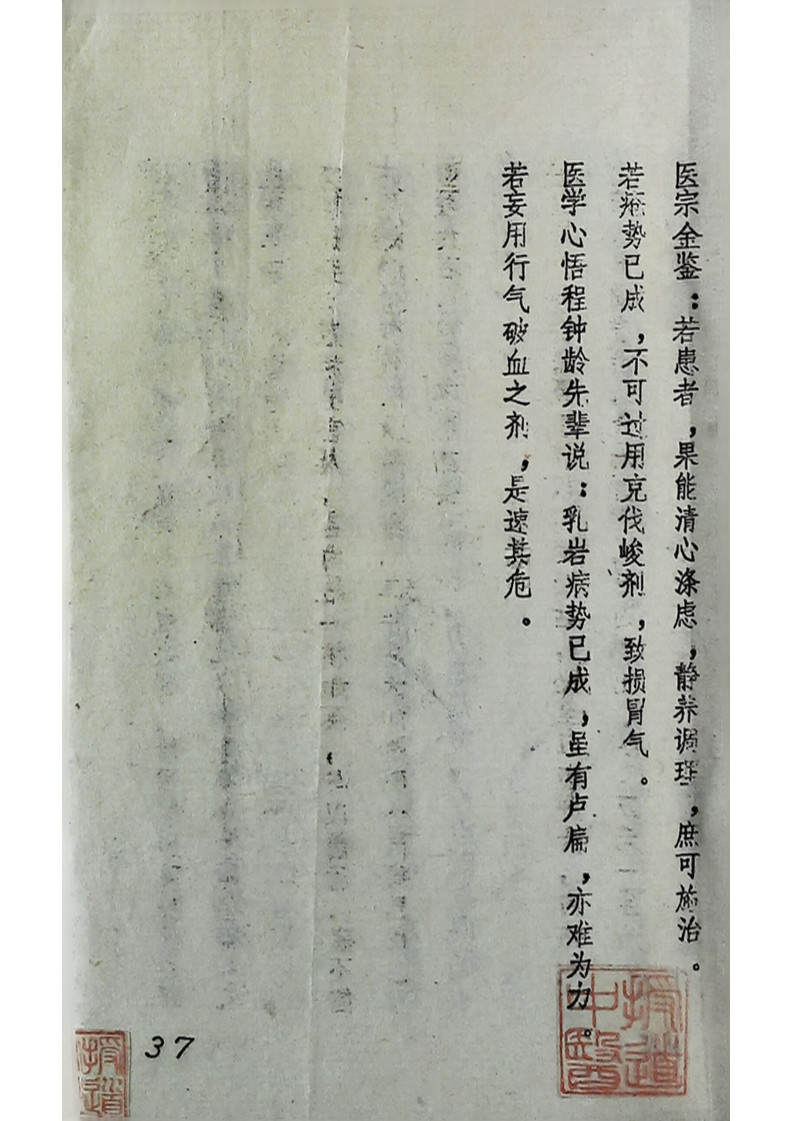 医宗金鉴：若患者，果能清心涤虑，静养调理，庶可施治。
若疮势已成，不可过用克伐峻剂，致损胃气。
医学心悟程钟龄先辈说：乳岩病势已成，虽有卢扁，亦难为力。
若妄用行气破血之剂，是速其危。
授道中醫
授道
37